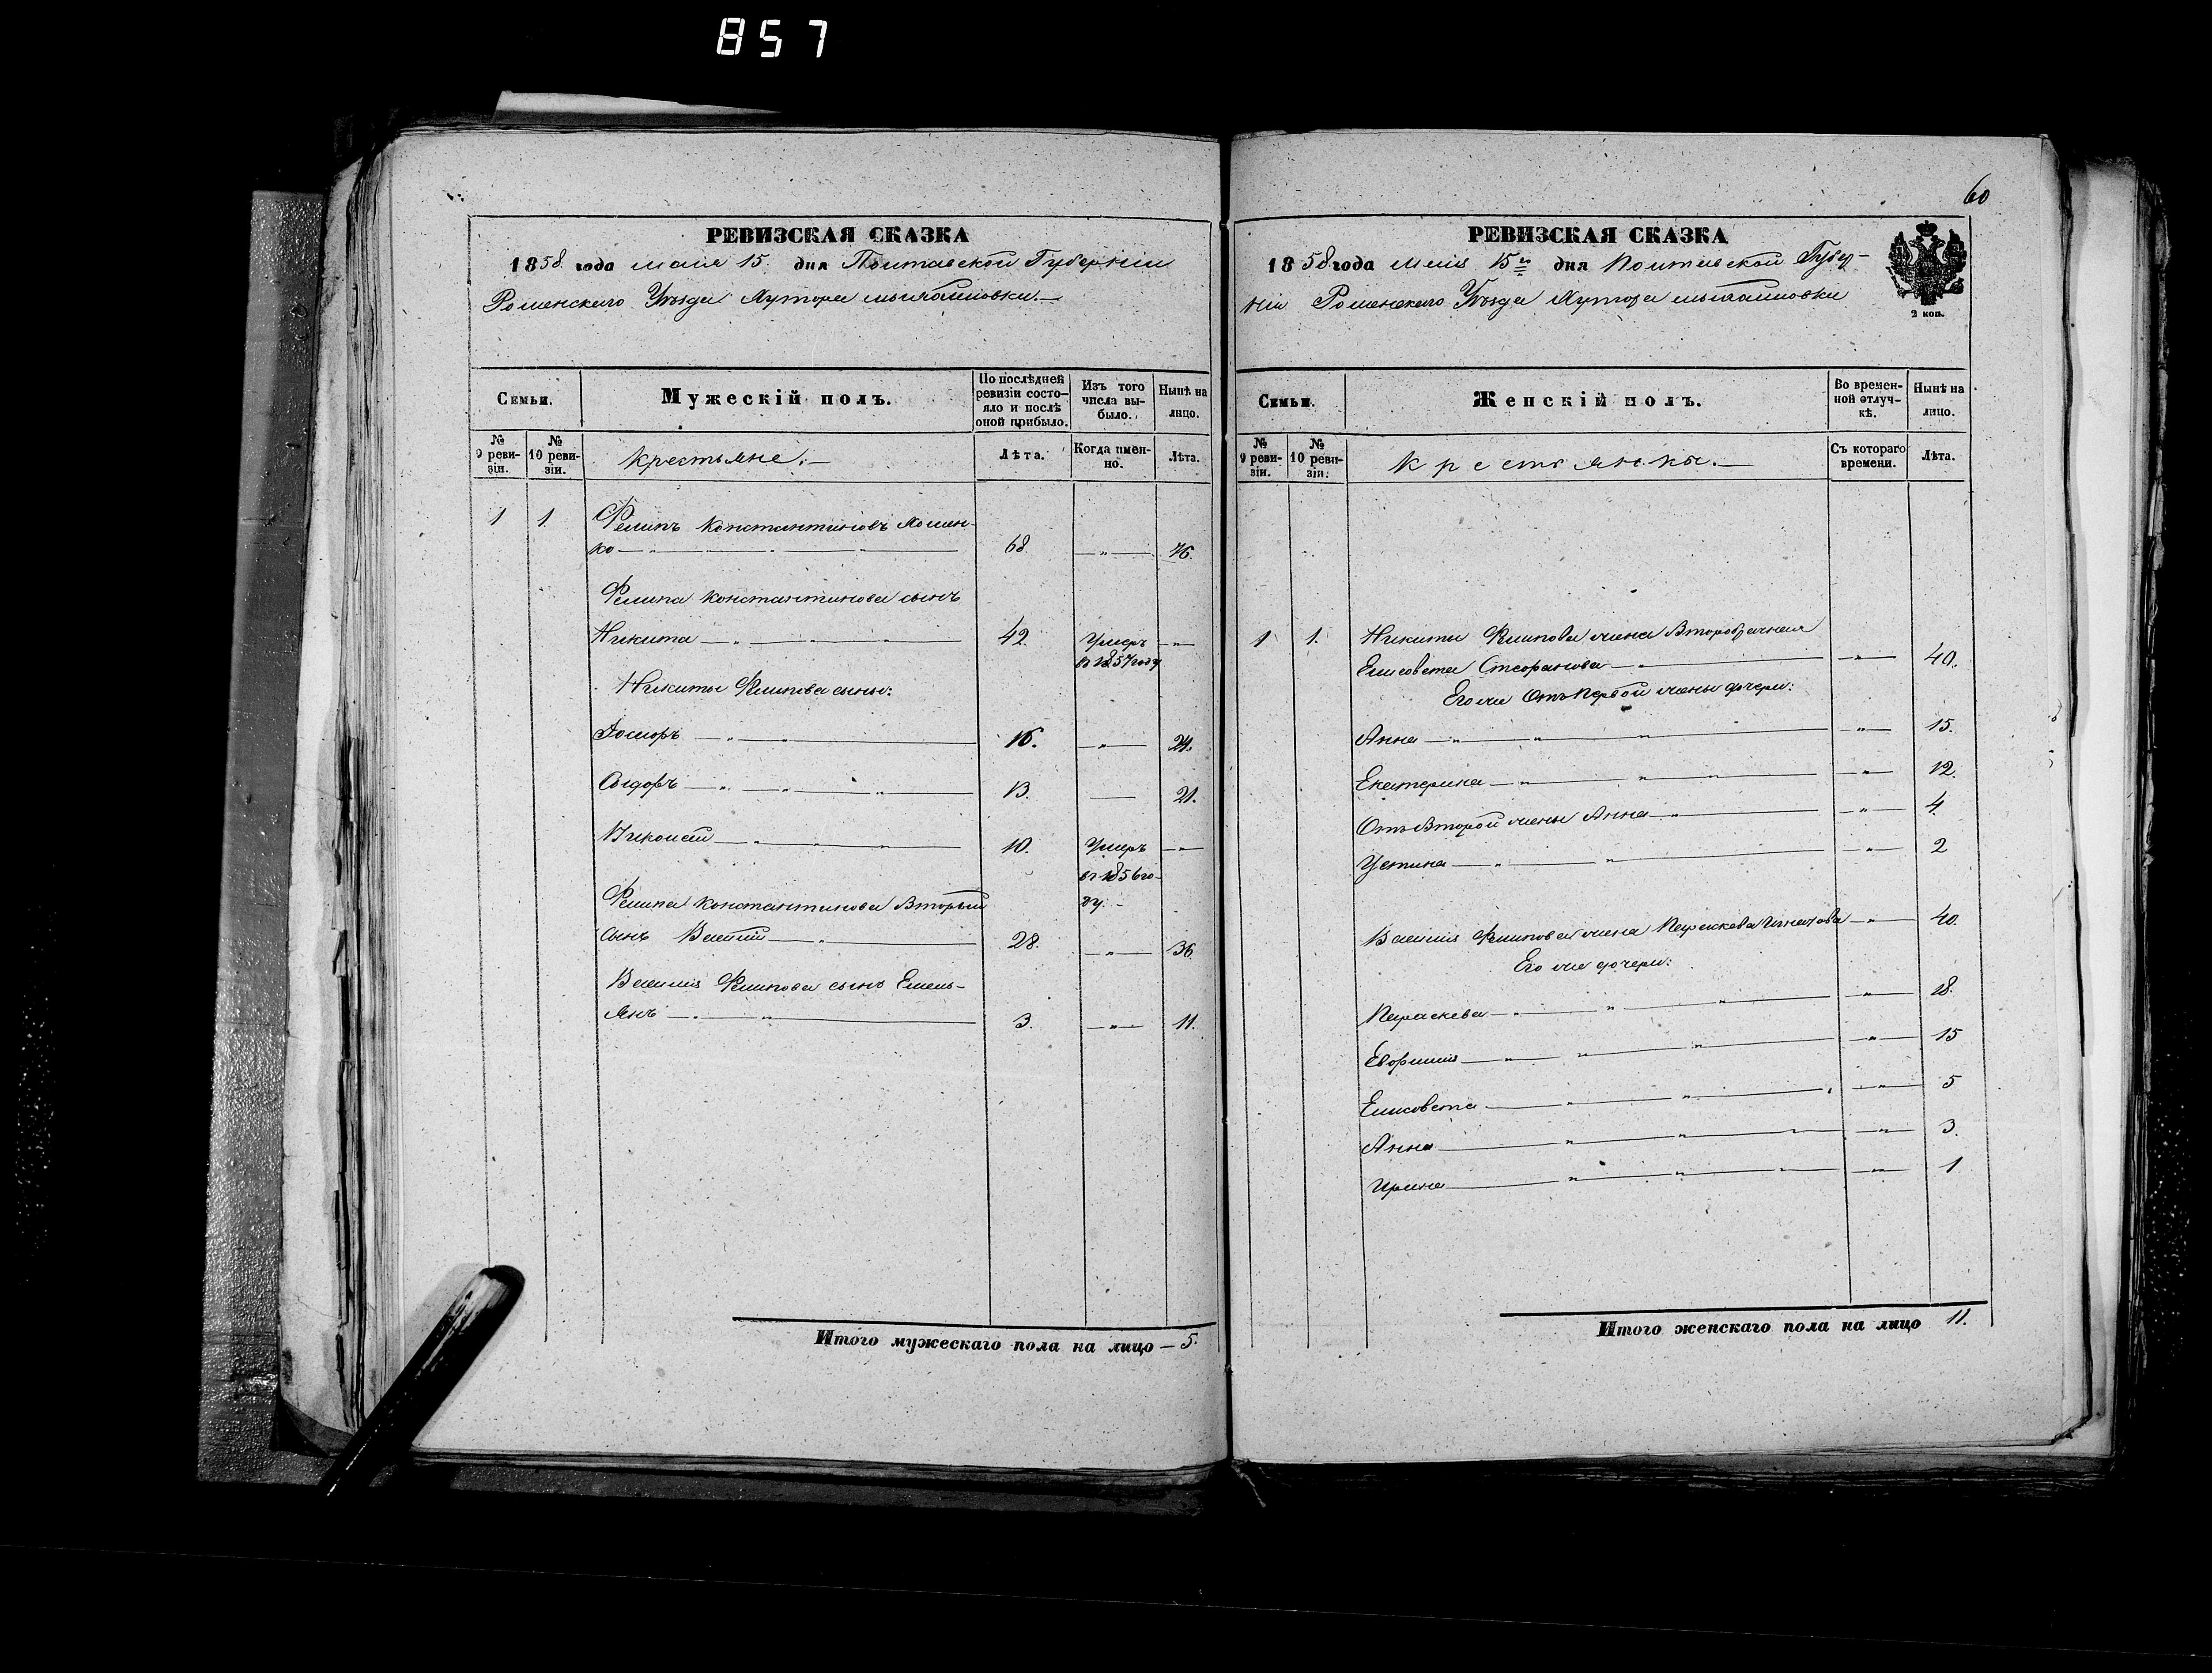 857
60
РЕВИЗСКАЯ СКАЗКА
1858 года маія 15 дня Полтавской Губерніи
Роменскаго Уѣзда Хутора
Семьи.
Мужескій полъ.
По послѣдней ревизіи состояло и послѣ оной прибыло.
Изъ того числа выбыло.
Нынѣ на лицо.
№ 9 ревизіи.
№ 10 ревизіи.
Крестьяне:
Лѣта.
Когда именно.
Лѣта.
1 1. Филипъ Константиновъ Хомен-
ко 68 76.
Филипа Константинова сынъ
Никита 42. Умеръ
въ 1857 году
Никиты Филипова сыны:
16. 24.
Сидоръ 13. 21.
10. Умеръ
въ 1856 го-
ду.
Филипа Константинова Вторый
сынъ Василій 28. 36
Василія Филипова сынъ Емель-
янъ 3. 11.
Итого мужескаго пола на лицо 5.
РЕВИЗСКАЯ СКАЗКА
1858 года маія 15 дня Полтавской Губер-
ніи Роменскаго Уѣзда Хутора
2 коп.
Семьи.
Женскій полъ.
Во временной отлучкѣ.
Нынѣ на лицо.
№ 9 ревизіи.
№ 10 ревизіи.
Крестьянки.
Съ котораго времени.
Лѣта.
1 1. Никиты Филипова жена Второбрачная
Елисовета Стефанова 40.
Его же Отъ Первой жены дочери:
Анна 15.
Екатерина 12.
Отъ Второй жены Анна 4.
Устина 2
Василія Филипова жена Параскева Игнатова 40.
Его же дочери:
Параскева 18.
Евфимія 15
Елисовета 5
Анна 3.
Ирина 1
Итого женскаго пола на лицо 11.